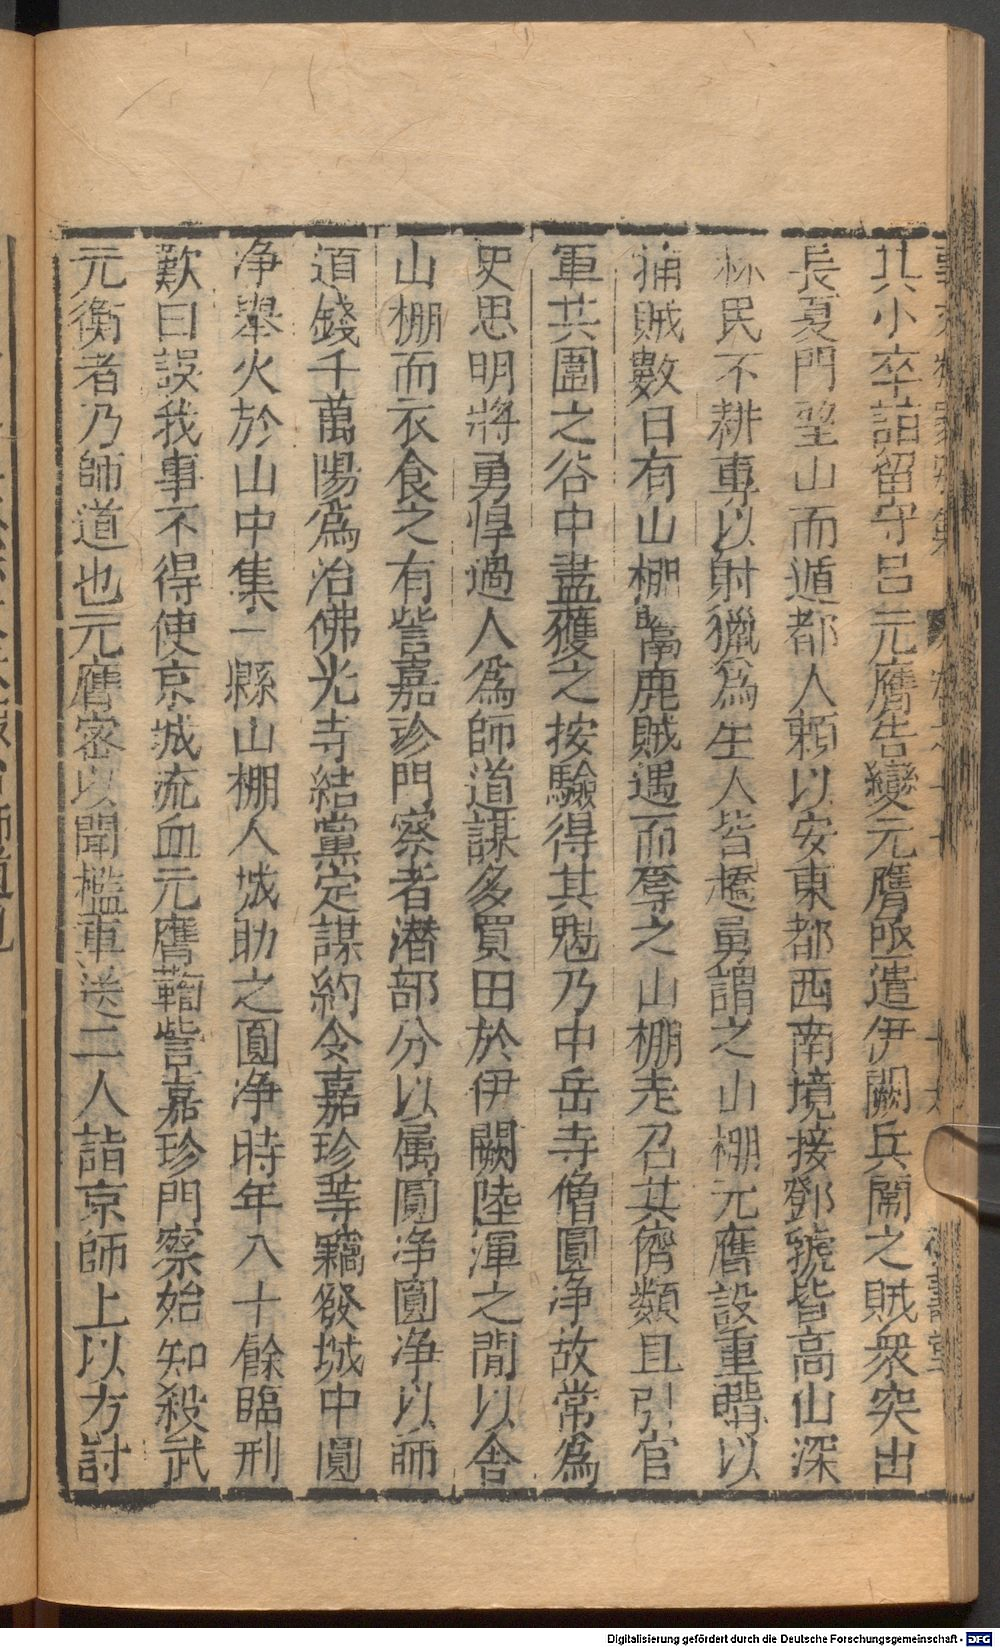 其小卒詣留守呂元膺告變元膺亟遣伊闕兵圍之賊衆突出
長夏門望山而遁都人賴以安東都西南境接鄧虢皆高山深
林民不耕專以射獵爲生人皆趫勇謂之山棚元膺設重購以
捕賊數日有山棚鬻鹿賊遇而奪之山棚走召其儕類且引官
軍共圍之谷中盡獲之按驗得其魁乃中岳寺僧圓净故常爲
史思明將勇悍過人爲師道謀多買田於伊闕陸渾之間以舍
山棚而衣食之有訾嘉珍門察者潜部分以属圓净圓净以師
道錢千萬陽爲治佛光寺結黨定謀約令嘉珍等竊發城中圓
净舉火於山中集二縣山棚人城助之圓净時年八十餘臨刑
歎曰誤我事不得使京城流血元膺鞫訾嘉珍門察始知殺武
元衡者乃師道也元膺密以聞檻車送二人詣京師上以方討
Digitalisierung gefördert durch die Deutsche Forschungsgemeinschaft - DFG